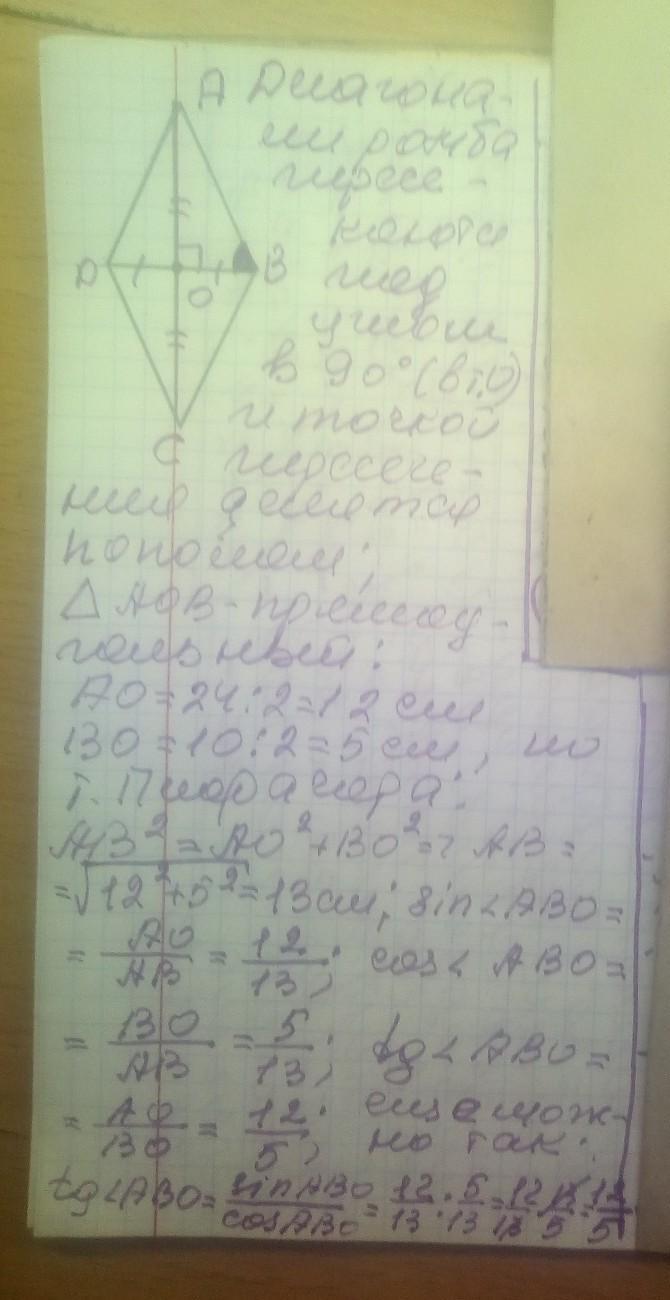 A Диагона-
ли ромба
пересе-
каются
D O B под
углом
в 90° (в т.О)
и точкой
C пересече-
ния делятся
пополам;
△ AOB - прямоу-
гольный:
AO = 24:2 = 12 см
BO = 10:2 = 5 см, по
т. Пифагора:
AB² = AO² + BO² => AB =
= √12² + 5² = 13 см; sin < ABO =
= AO/AB = 12/13; cos < ABO =
= BO/AB = 5/13; tg < ABO =
= AO/BO = 12/5; еще мож-
но так:
tg < ABO = sin ABO/cos ABO = 12/13 : 5/13 = 12/13 · 13/5 = 12/5